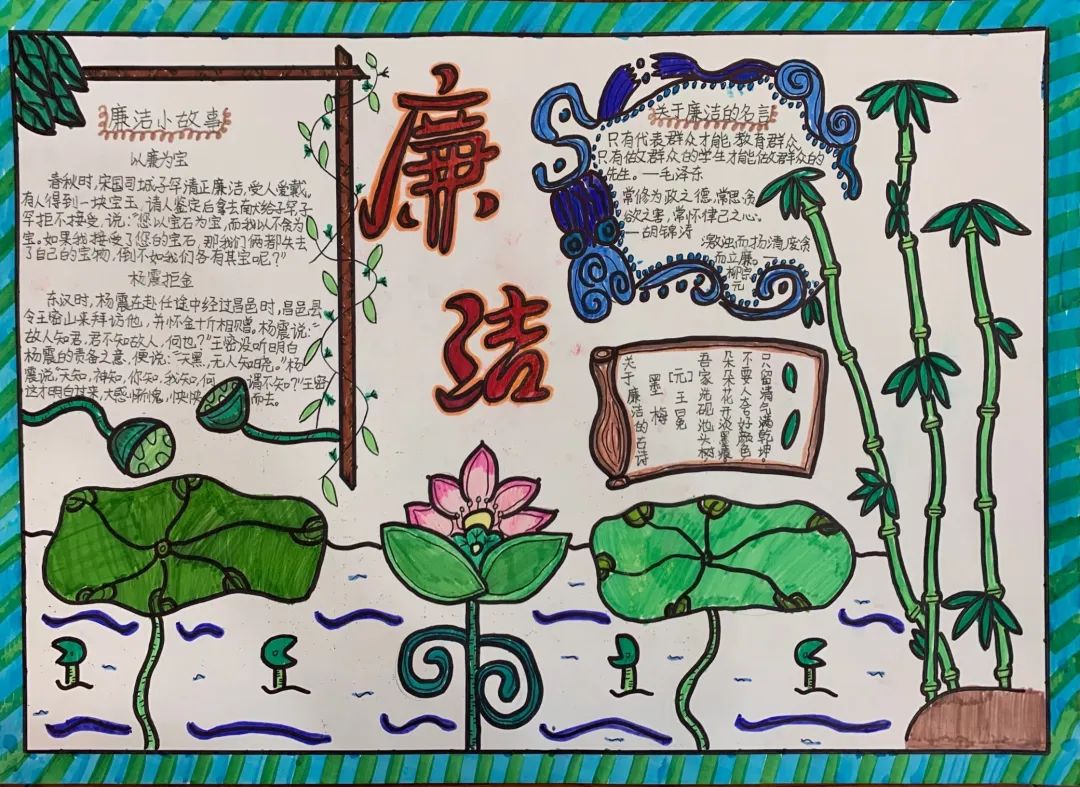 廉洁小故事
以廉为宝
春秋时,宋国司城子罕清正廉洁,受人爱戴。
有人得到一块宝玉,请人鉴定后拿去献给子罕,子
罕拒不接受,说:"您以宝石为宝,而我以不贪为
宝。如果我接受了您的宝石,那我们俩都失去
了自己的宝物,倒不如我们各有其宝呢?"
杨震拒金
东汉时,杨震在赴任途中经过昌邑时,昌邑县
令王密山来拜访他,并怀金十斤相赠。杨震说:"
故人知君,君不知故人,何也?"王密没听明白
杨震的责备之意,便说:"天黑,无人知晓。"杨
震说:"天知,神知,你知,我知,何 谓不知?"王密
这才明白过来,大感惭愧,怏怏 而去。
廉
洁
关于廉洁的名言
只有代表群众才能教育群众,
只有做群众的学生才能做群众的
先生。—毛泽东
常修为政之德,常思贪
欲之害,常怀律己之心。
—胡锦涛
激浊而扬清,废贪
而立廉。—
柳宗
元
关于廉洁的古诗
墨梅
[元]王冕
吾家洗砚池头树
朵朵花开淡墨痕
不要人夸好颜色
只留清气满乾坤。